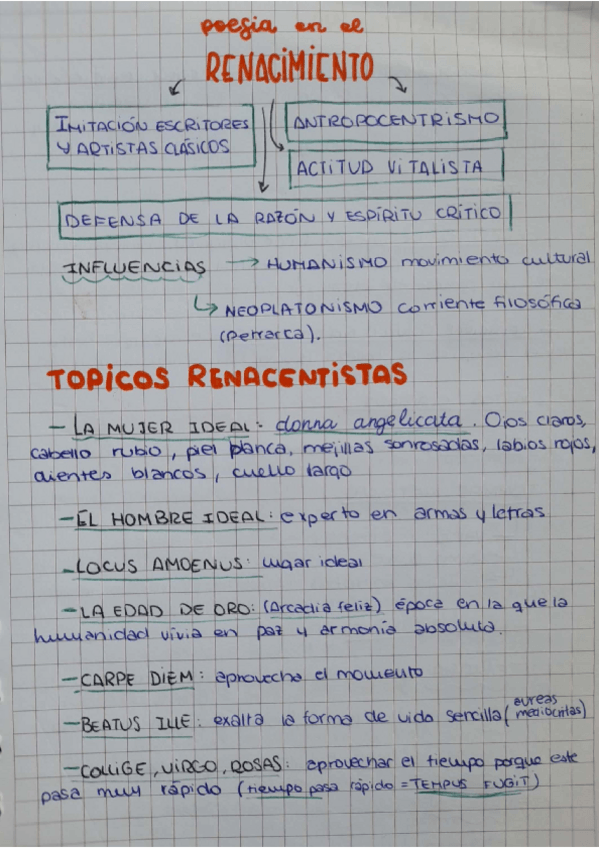 poesia en el
RENACIMIENTO
IMITACIÓN ESCRITORES
Y ARTISTAS CLÁSICOS
ANTROPOCENTRISMO
ACTITUD VITALISTA
DEFENSA DE LA RAZÓN Y ESPÍRITU CRÍTICO
INFLUENCIAS → HUMANISMO movimiento cultural
↳ NEOPLATONISMO corriente filosófica
(Petrarca).
TOPICOS RENACENTISTAS
- LA MUJER IDEAL: donna angelicata. Ojos claros,
cabello rubio, piel blanca, mejillas sonrosadas, labios rojos,
dientes blancos, cuello largo
- EL HOMBRE IDEAL: experto en armas y letras
- LOCUS AMOENUS: lugar ideal
- LA EDAD DE ORO: (Arcadia feliz) época en la que la
humanidad vivia en paz y armonía absoluta.
- CARPE DIEM: aprovecha el momento
- BEATUS ILLE: exalta la forma de vida sencilla (aureas mediocritas)
- COLLIGE, VIRGO, ROSAS: aprovechar el tiempo porque este
pasa muy rápido (tiempo pasa rápido = TEMPUS FUGIT)